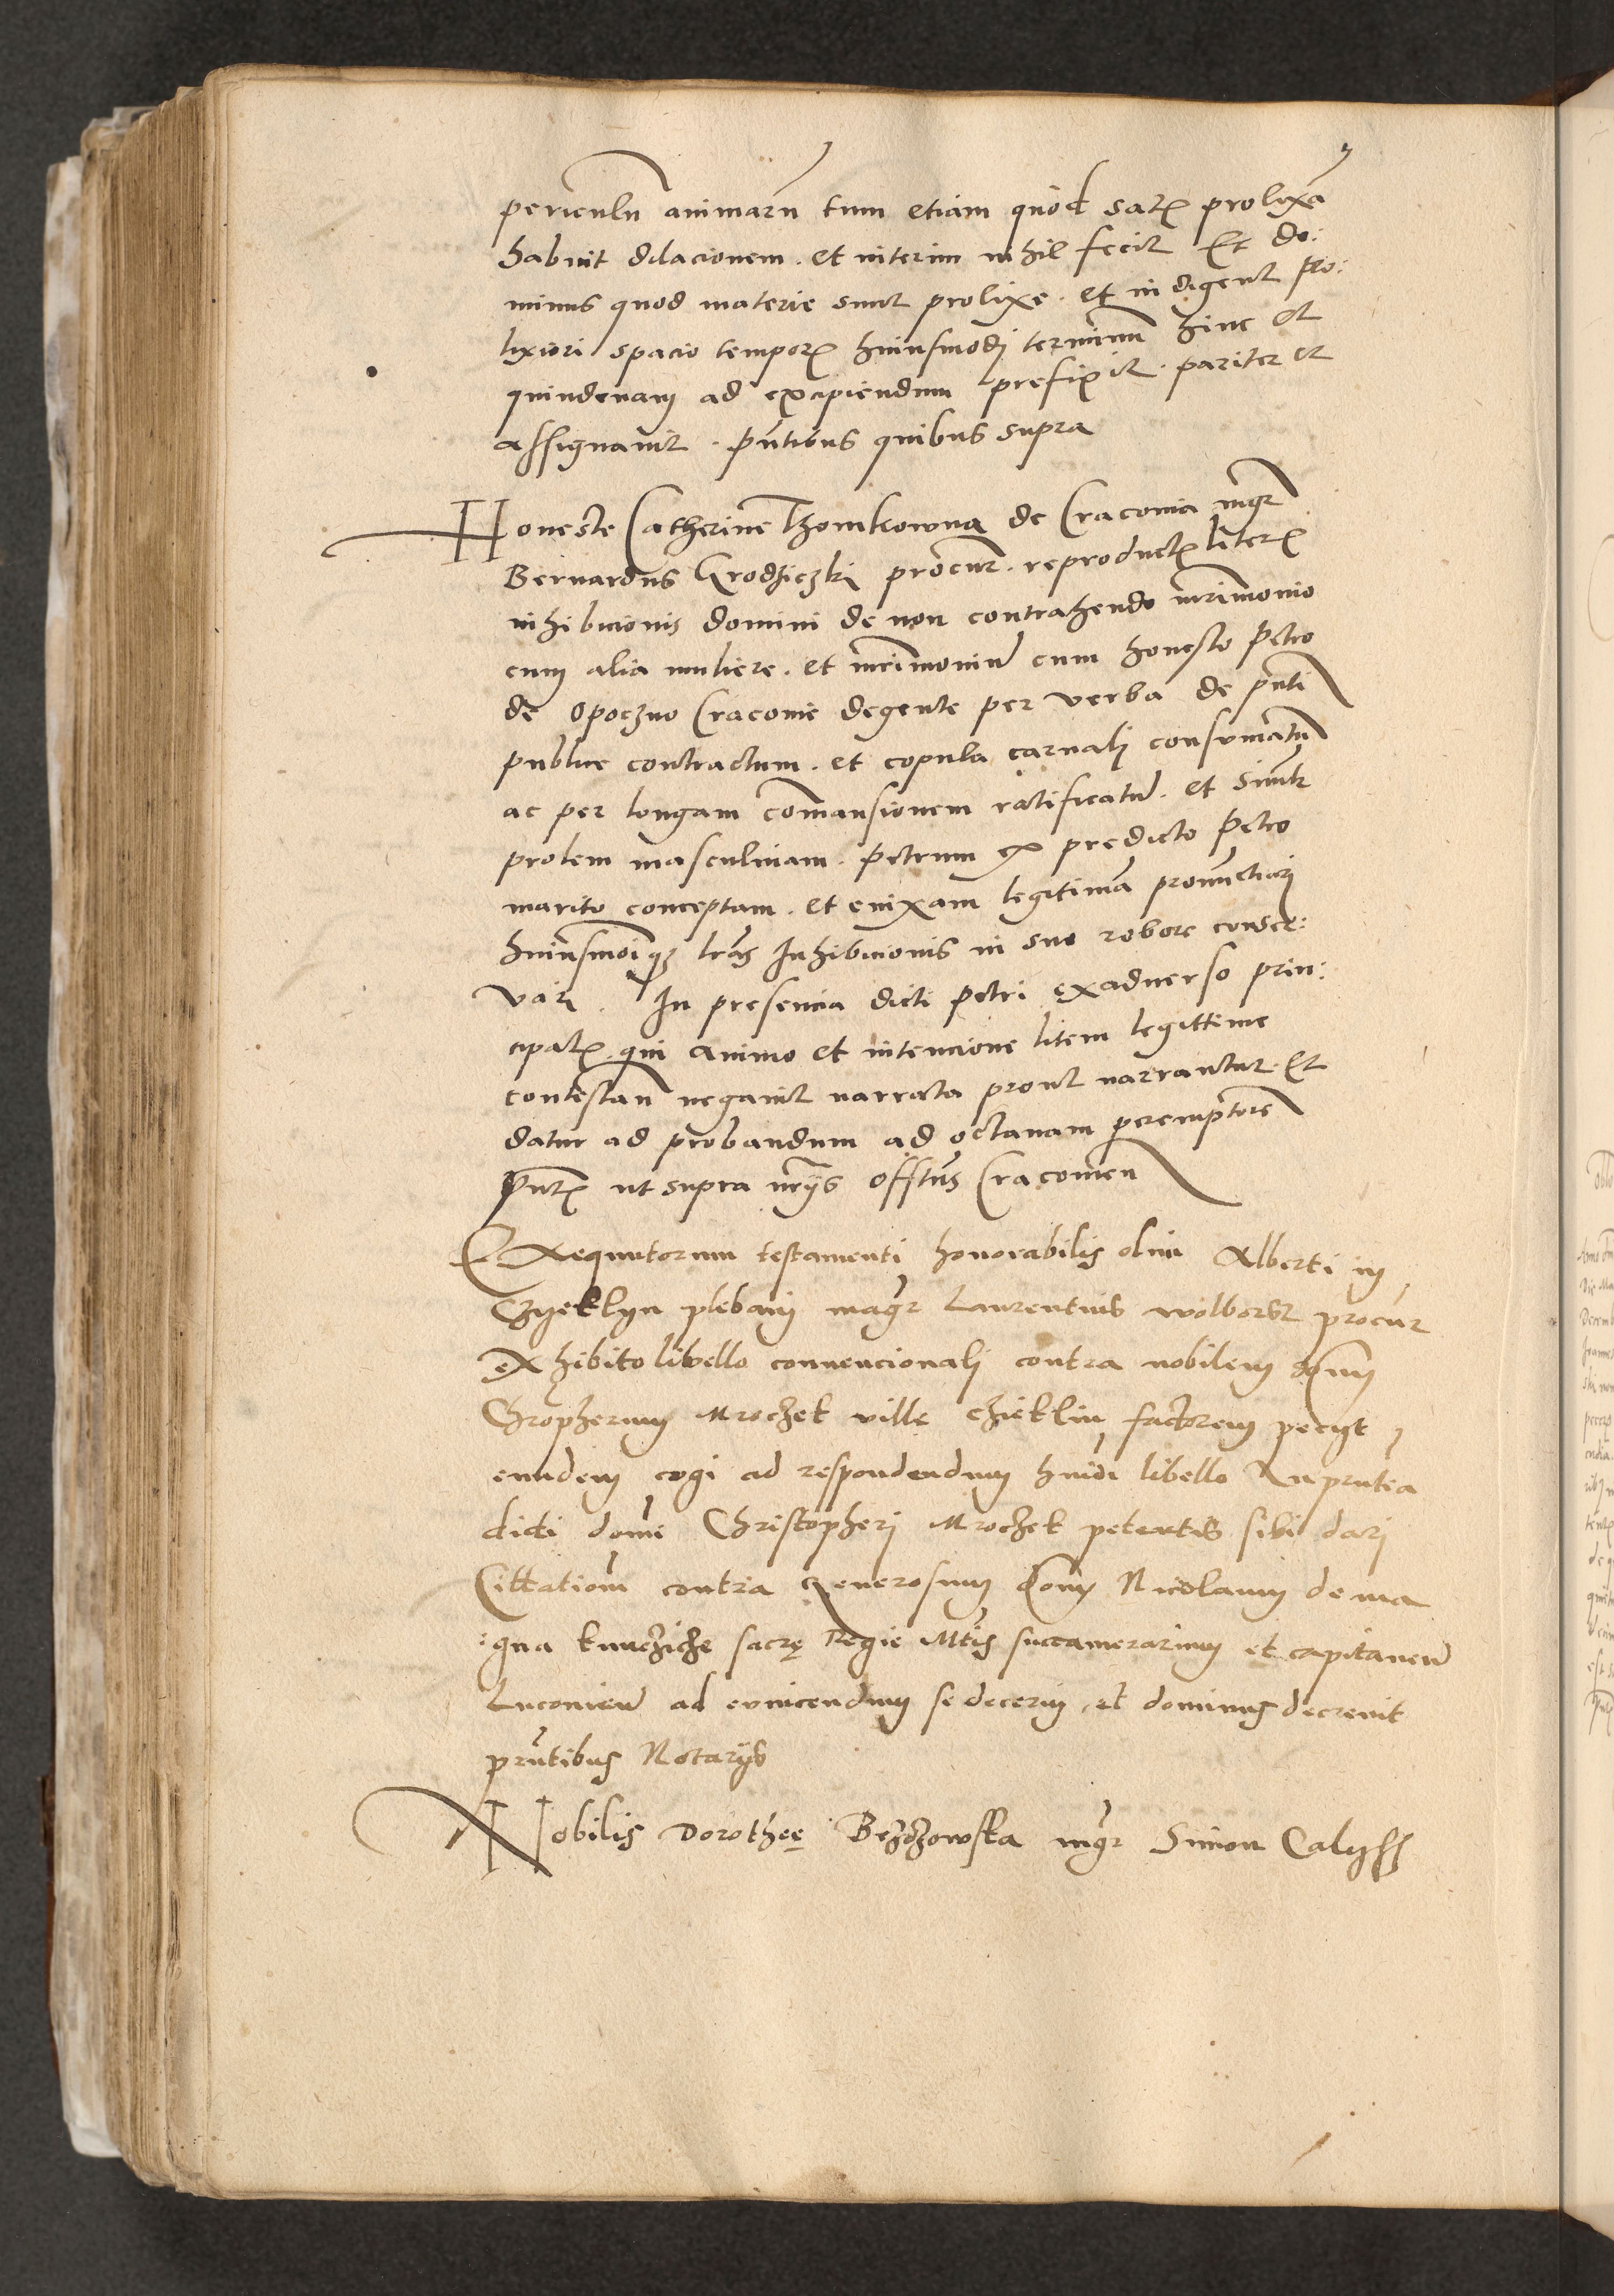 periculu animaru tum etiam quod satis prolixa
habuit dilacionem. et interim nihil fecit Et do:
minus quod materie sunt prolixe. et indigent pro:
lixiori spacio temporis huiusmodi terminum hinc et
quindenam ad excipiendum prefixit. pariter et
assignauit. pntibus quibus supra
Honeste Catherine Thomkowna de Cracouia mgr
Bernardus Grodziczki procur. reproductis literis
inhibicionis domini de non contrahendo mrimonio
cum alia muliere. et mrimoniu cum honesto Petro
de Opoczno Cracouie degente per verba de pnti
publice contractum. et copula carnali consumatu
ac per longam comansionem ratificatu. et simul
prolem masculinam. Petrum ex predicto Petro
marito conceptam. et enixam legitima pronunctiari
huiusmoique lras Inhibicionis in suo robore conser:
vari. In presencia dicti Petri exaduerso prin:
cipalis qui animo et intencione litem legittime
contestan negauit narrata prout narrantur. Et
datur ad probandum ad octauam peremptorie
Pntibus ut supra nrijs offtus Cracouien
Exequutorum testamenti honorabilis olim Alberti in
Czyeklyn plebani magr Laurentius wolborz procur
exhibito libello conuencionali contra nobilem dnum
Chropherum Mroczek ville Czieklin factorem pecijt
eundem cogi ad respondendum huidi libello In pntia
dicti domi Christopheri Mroczek petentis sibi dari
Cittationem contra Generosum dom Nicolaum de ma
:gna kunczicze sacre Regie Mtis succamerarium et capitaneu
Luconien ad euincendum se decerni et dominus decreuit
pntibus Notarijs
Nobilis Dorothee mgr Simon Calyss